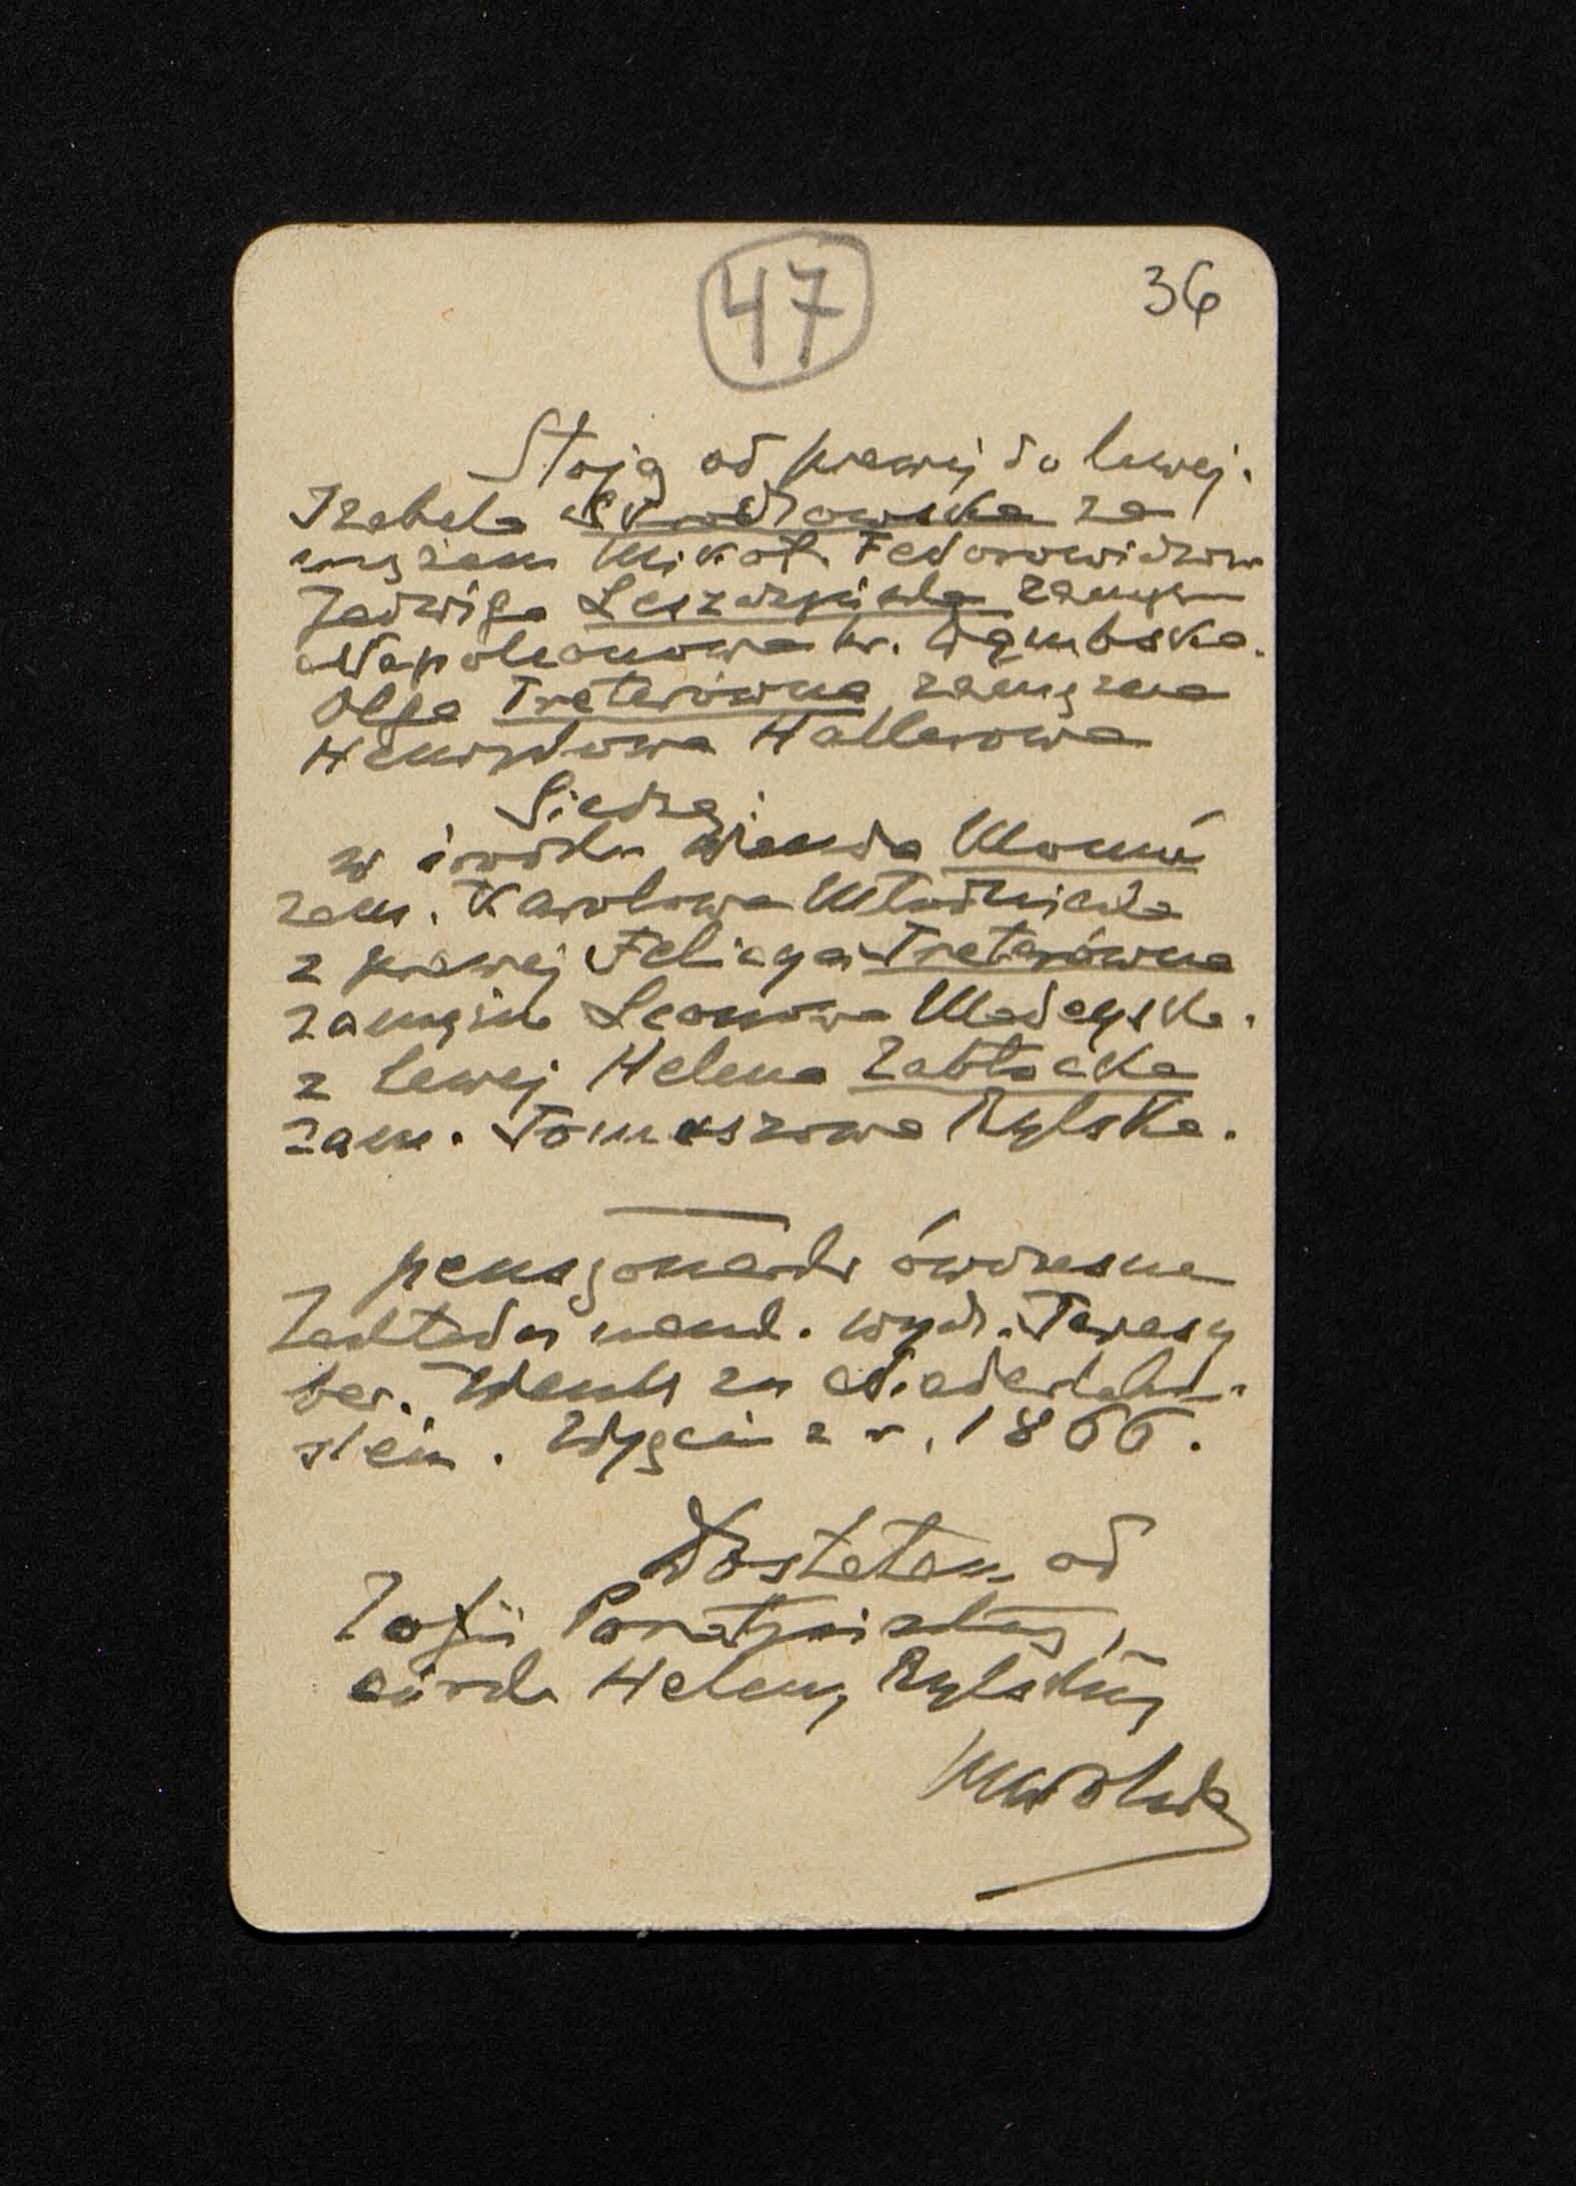 47
36
Stoją od prawej do lewej.
Izabela Skrodzowska za
mężem Mikoł. Fedorowiczow
Jadwiga Leszczyńska zamężn
Napoleonowa hr. Dąmbska.
Olga Treterówna zamężna
Henrykowa Hallerowa
Siedzą:
w środku Wanda
zam. Karolowa Młodnicka
z prawej Felicya Treterówna
zamężna Leonowa Madeyska.
z lewej Helena Zabłocka
zam. Tomaszowa Rylska.
pensjonarki ówczesne
Zakładu nauk. wych. Teresy
bar. w Niederlahn-
stein. Zdjęcie z r. 1866.
Dostałem od
Zofii
córki Heleny Rylskiej